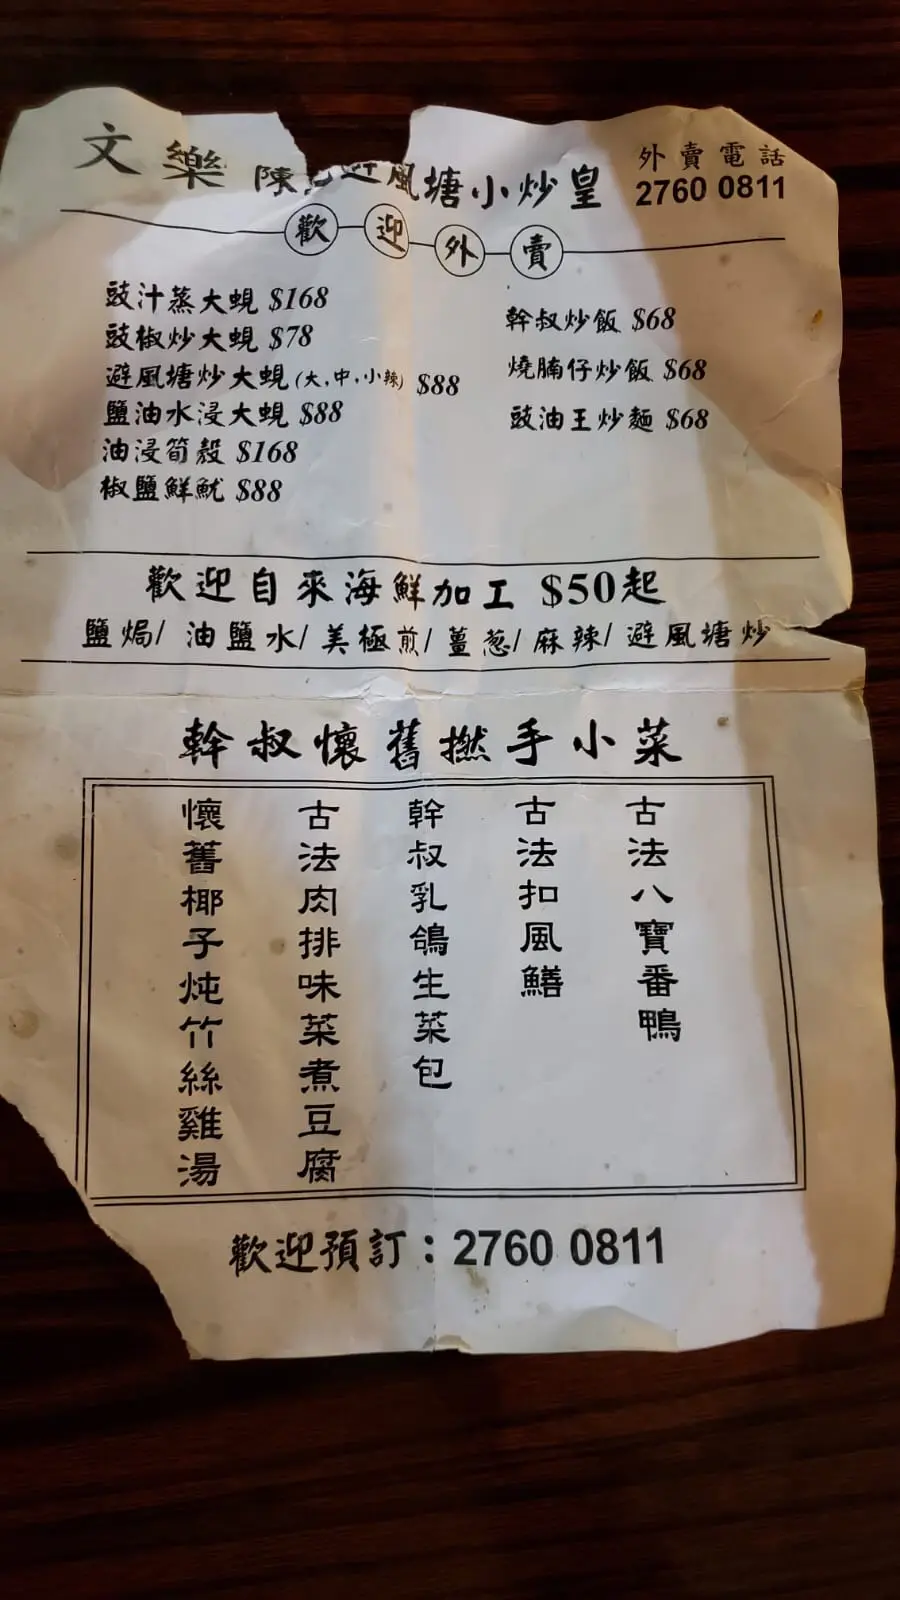 文樂 陳 避風塘小炒皇
外賣電話
2760 0811
歡迎外賣
豉汁蒸大蜆 $168
豉椒炒大蜆 $78
避風塘炒大蜆 (大,中,小辣) $88
鹽油水浸大蜆 $88
油浸筍殼 $168
椒鹽鮮魷 $88
幹叔炒飯 $68
燒腩仔炒飯 $68
豉油王炒麵 $68
歡迎自來海鮮加工 $50起
鹽焗/ 油鹽水/ 美極煎/ 薑葱/ 麻辣/ 避風塘炒
幹叔懷舊撚手小菜
古法八寶番鴨
古法扣風鱔
幹叔乳鴿生菜包
古法肉排味菜煮豆腐
懷舊椰子炖竹絲雞湯
歡迎預訂：2760 0811